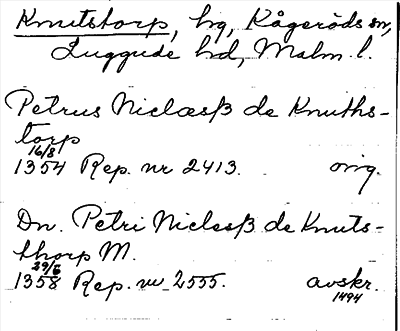 Knutstorp, hg, Kågeröds sn,
Luggude hd, Malm. l.
Petrus Niclæsß de Knuths-
torp
16/8
1354 Rep. nr 2413. orig.
Dn. Petri Niclesß de Knuts-
thorp M.
29/6
1358 Rep. nr 2555. avskr.
1494